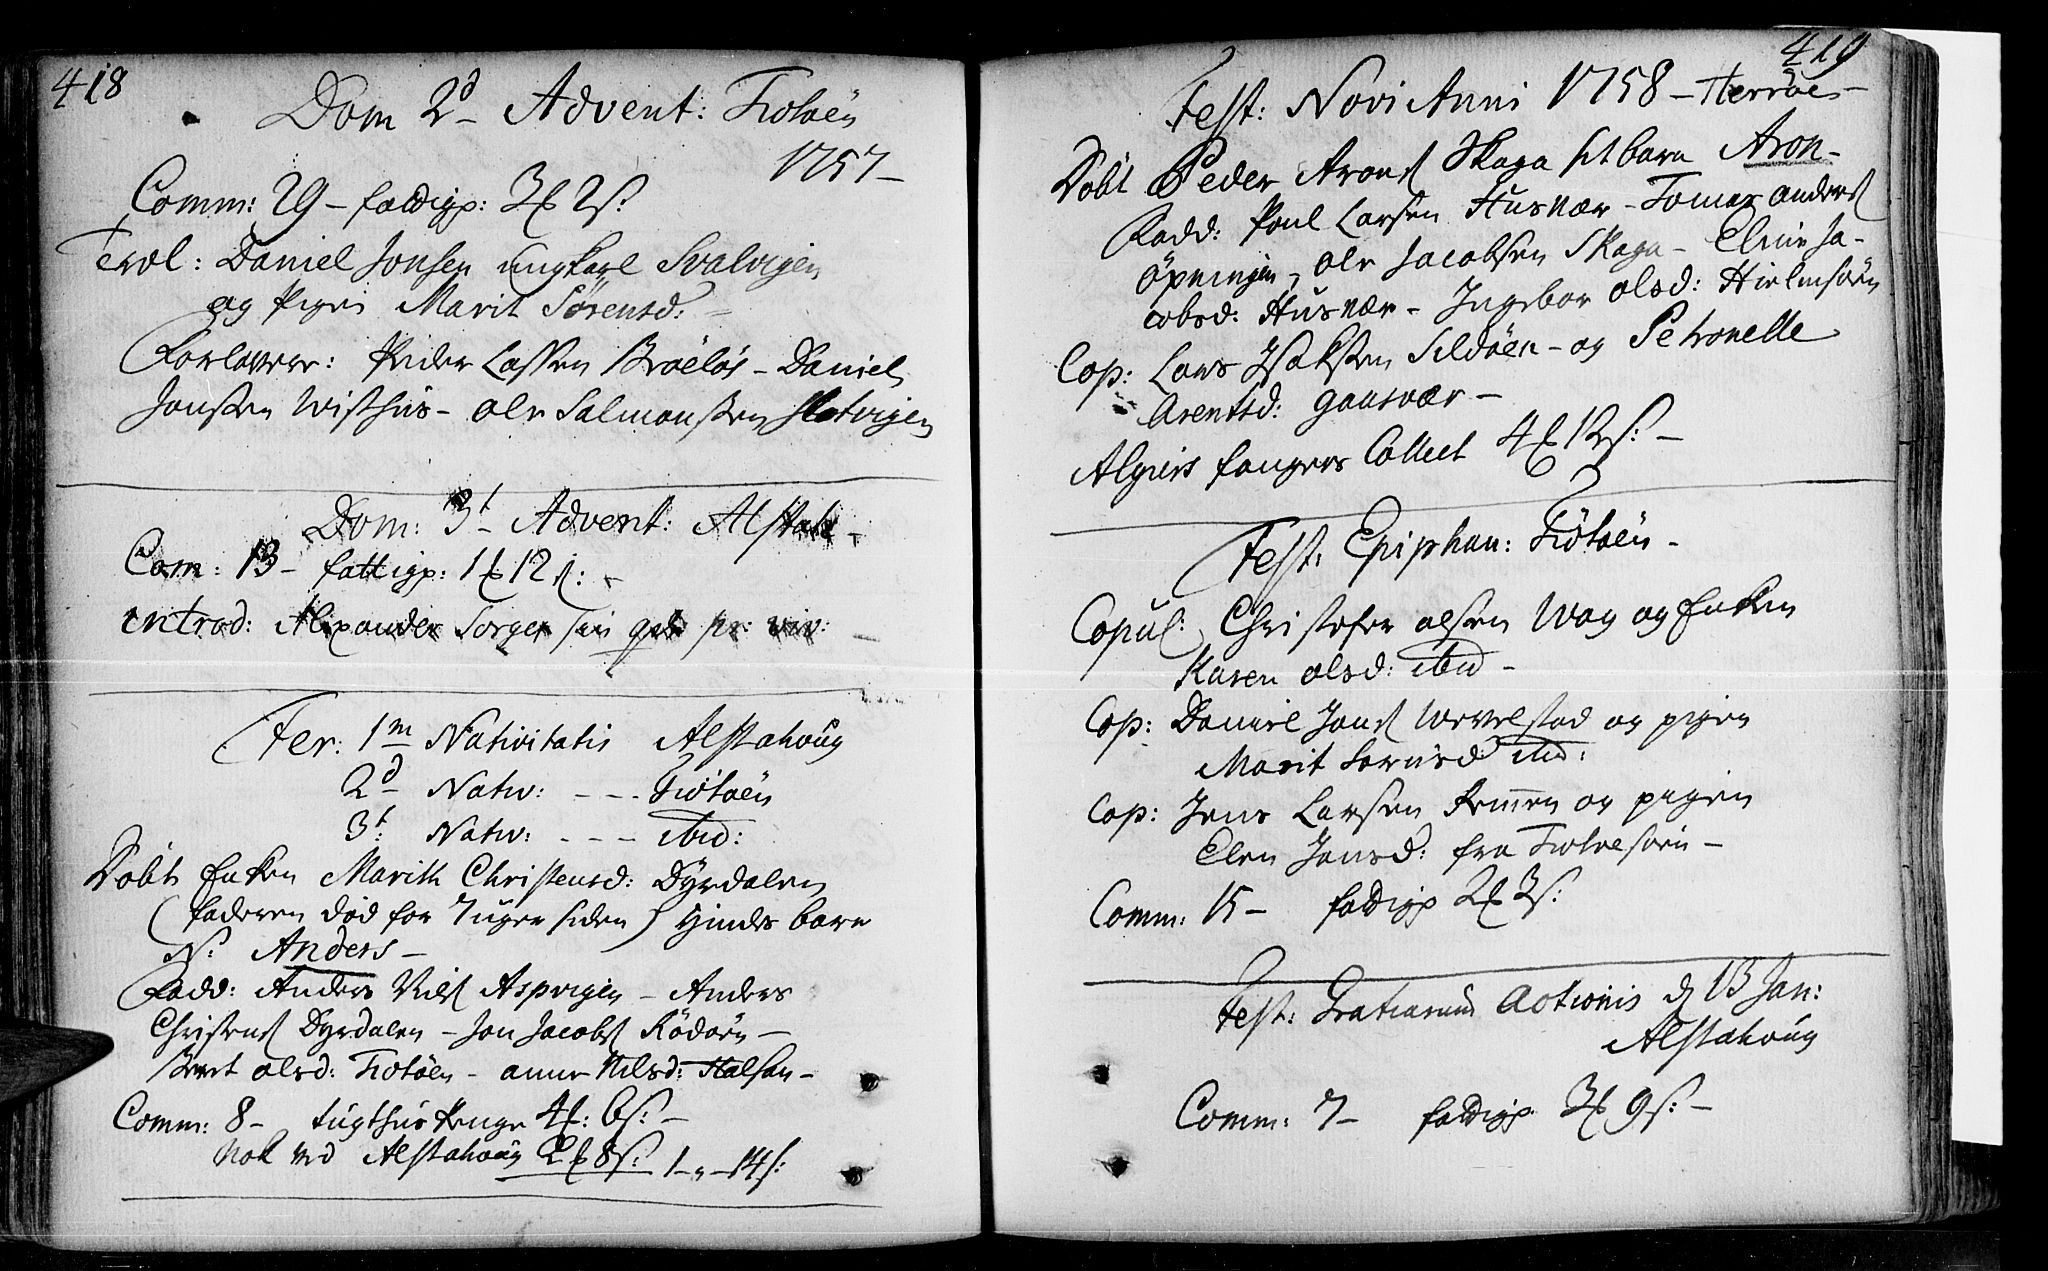 418
Dom 2d Advent: Tiøtøen
1757 –
Comm: 29 – fattigp: 3 ℔ 2 s:
Trol: Daniel Jonsen ungkarl Svalvigen
og Pigen Marit Sørensd: –
Forlovere: Peder Lassen Bræeløs – Daniel
Jonssen Wisthus – Ole Salmonssen Slotvigen
Dom: 3t Advent: Alstah –
Com: 13 – fattigp: 1 ℔ 12 s: –
introd: Alexander Sorger sin pr: viv: –
Fer: 1m Nativitatis Alstahoug
2d Nativ: - - - Tiøtøen
3t: Nativ: - - - ibid:
Døbt Enken Marith Christensd: Dyrdalen
(faderen død for 7 uger siden) Hindes barn
N: Anders –
Fadd: Anders Nils: Aspvigen – Anders
Christens: Dyrdalen – Jon Jacobs: Rødøen –
Beret olsd: Tiøtøen – anne Nilsd: Halsan –
Comm: 8 – tugthus Penge 4 ℔: 6 s: –
Nok ved Alstahoug 2 ℔ 8 s: 1 – „ – 14 s:
419
Fest: Novi Anni 1758 – Herrøe –
Døbt Peder Arons: Skaga sit barn Aron –
Fadd: Poul Larsen Husvær – Tomas anders:
Øpningen – ole Jacobsen Skaga – Eline Ja-
cobsd: Husvær – Ingebor olsd: Hielmsøen
Cop: Lars Isaksen Sildøen – og Petronelle
Arentsd: gaasvær –
Algiers fangers Collect 4 ℔ 12 s: –
Fest: Epiphan: Tiøtøen –
Copul: Christofer olsen Wog og Enken
Karen olsd: ibid –
Cop: Daniel Jons: Wevelstad og pigen
Marit Sørensd ibid:
Cop: Jens Larsen Remen og pigen
Elen Jonsd: fra Tiøtøen –
Comm: 15 – fattigp 2 ℔ 3 s:
Fest: Gratiarum Actionis d 13 Jan:
Alstahoug
Comm: 7 – fattigp: 3 ℔ 9 s: –